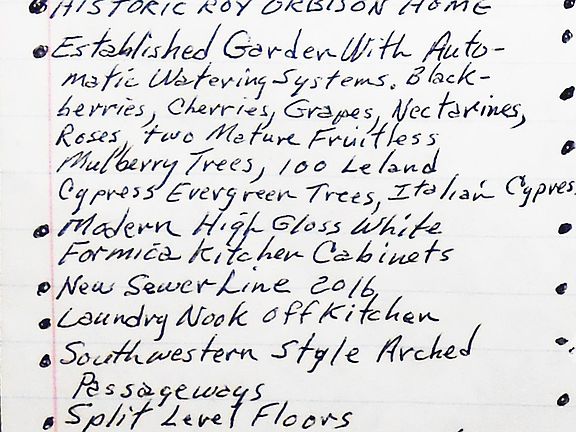 • HISTORIC ROY ORBISON HOME
• Established Garden With Auto-
matic Watering Systems. Black-
berries, Cherries, Grapes, Nectarines,
Roses, two Mature Fruitless
Mulberry Trees, 100 Leland
Cypress Evergreen Trees, Italian Cypres
• Modern High Gloss White
Formica Kitchen Cabinets
• New Sewer Line 2016
• Laundry Nook off Kitchen
• Southwestern Style Arched
Passageways
• Split Level Floors